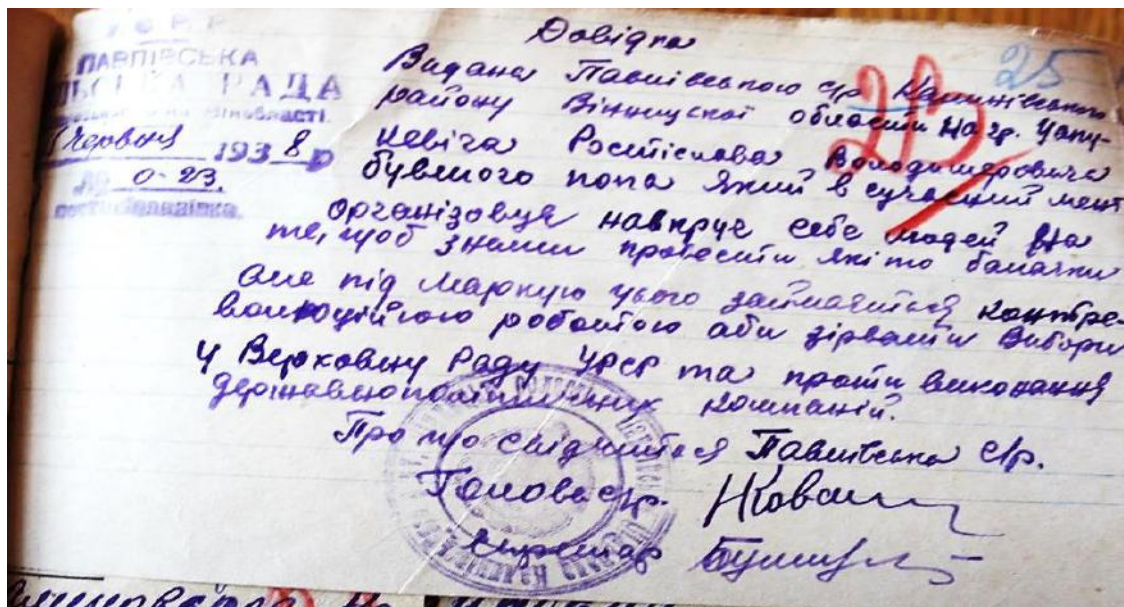 УСРР
ПАВЛІВСЬКА
СІЛЬСЬКА РАДА
Червня 1938 р
№ 0-23.
25
Довідка
Видана Павлівською с/р Калинівського
району Вінницкої области на гр.
Ростіслава Володимировича
бувшого попа який в сучасний мент
організовує навкруг себе людей на
те, щоб з ними провести якіто балачки
але під маркую цього займаеться контре-
волюційною роботою аби зірвати вибори
у Верховну Раду УРСР та проти виконання
державнополітичних компаній.
Про що свідчиться Павлівська с/р.
Голова с/р.
Секретар